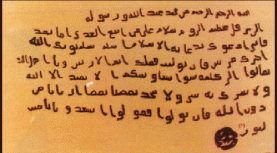 بسم الله الرحمن الرحيم من محمد عبد الله ورسوله
الى هرقل عظيم الروم سلام على من اتبع الهدى اما بعد
فاني ادعوك بدعاية الاسلام اسلم تسلم يوتك الله
اجرك مرتين فان توليت فعليك اثم
تعالوا الى كلمة سوا بيننا وبينكم الا نعبد الا الله
ولا نشرك به شيا ولا يتخذ بعضنا بعضا اربابا من
دون الله فان تولوا فقولوا اشهدوا بانا مسلمون